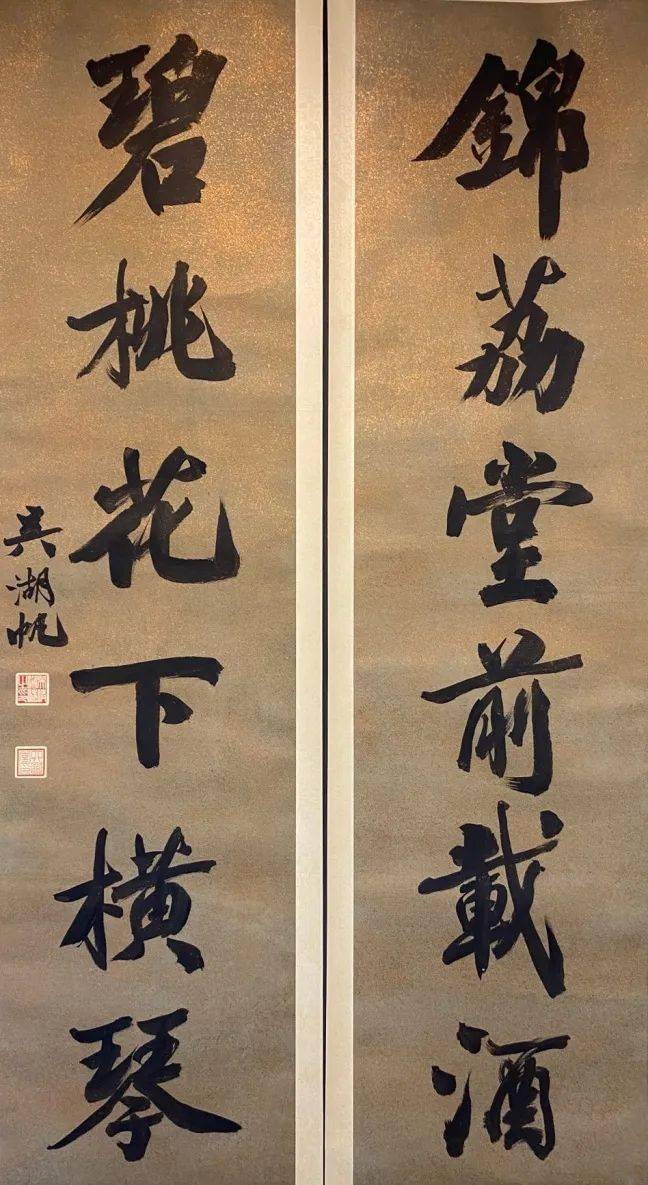 錦荔堂前載酒
碧桃花下橫琴
吳湖帆